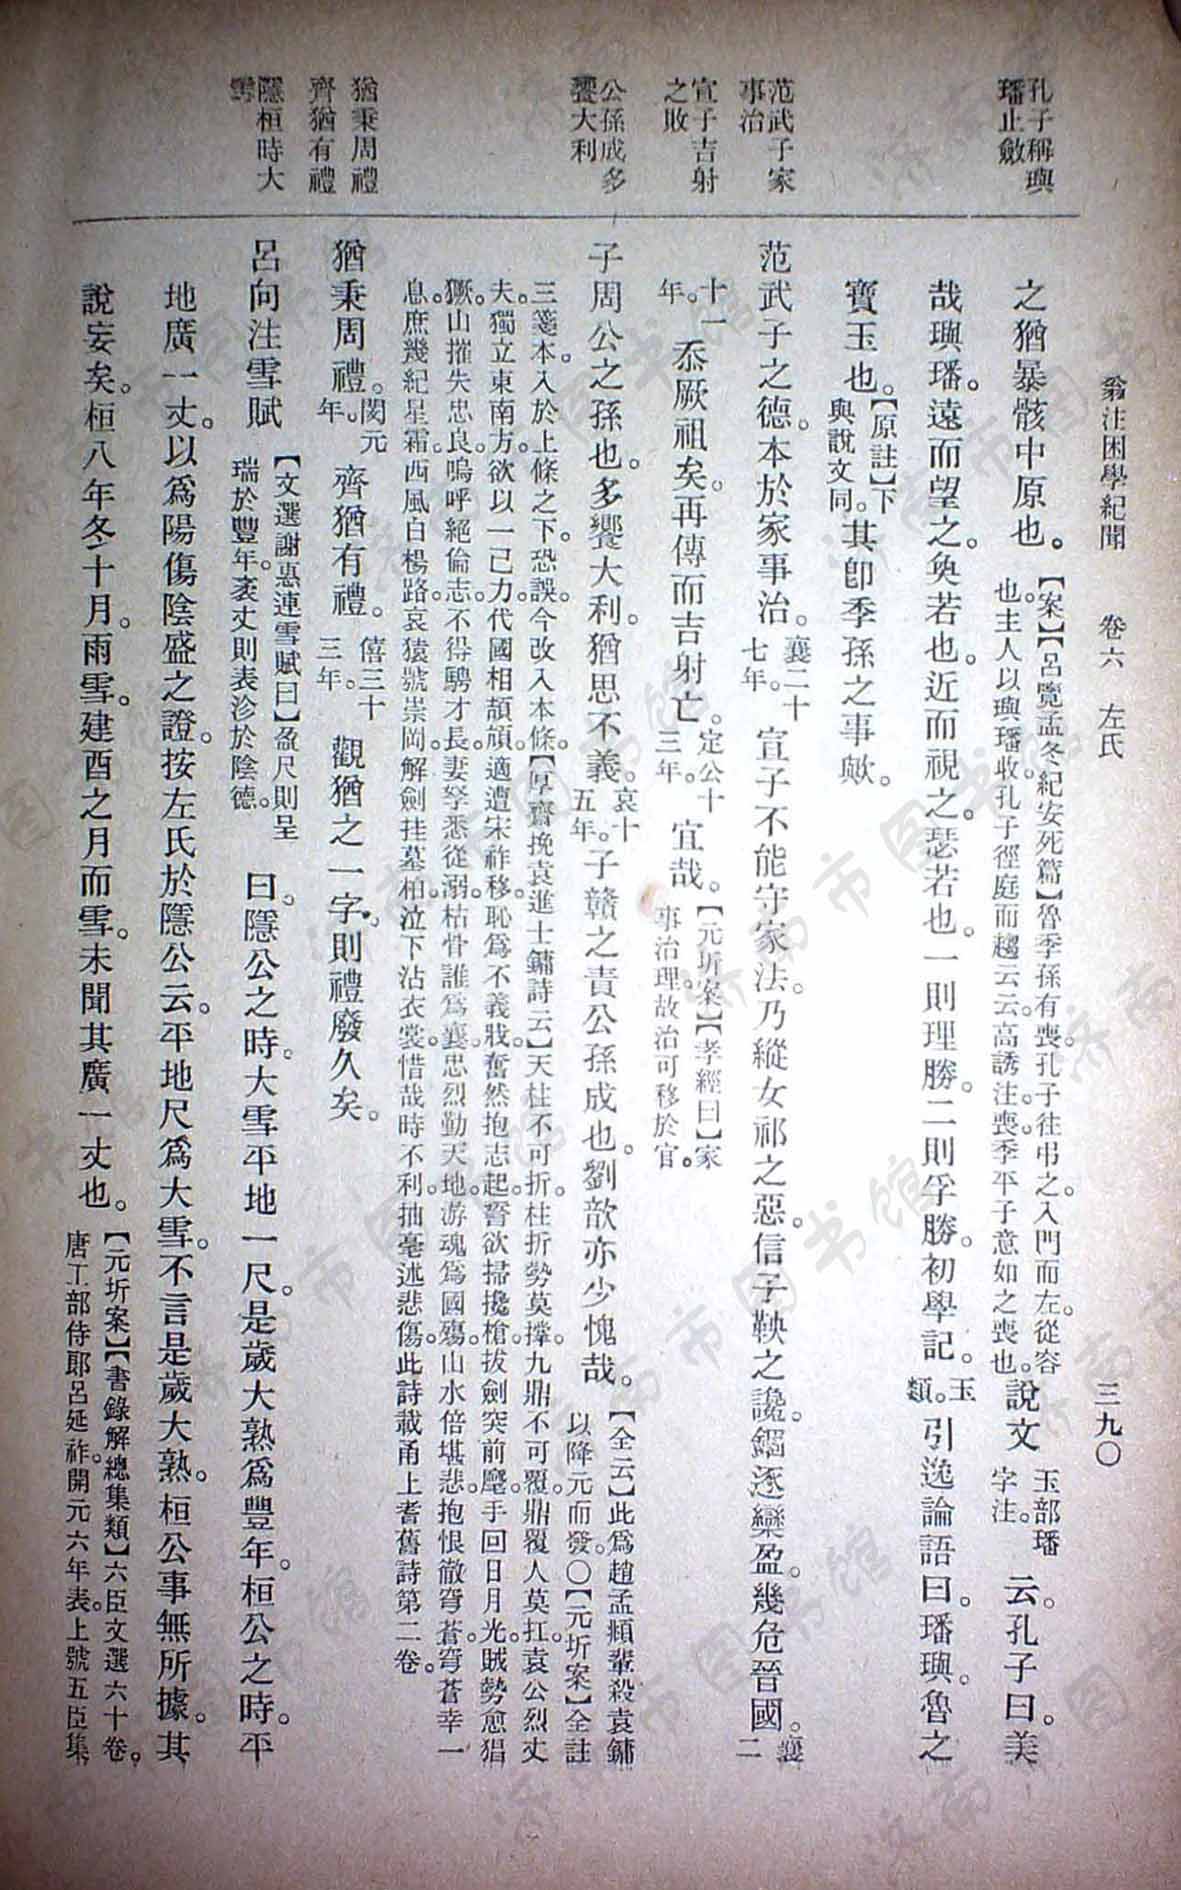 翁注困學紀聞　卷六　左氏　三九〇
孔子稱璵
璠止斂
范武子家
事治
宣子吉射
之敗
公孫成多
饗大利
猶秉周禮
齊猶有禮
隱桓時大
雪
之猶暴骸中原也。【案】【呂覽孟冬紀安死篇】魯季孫有喪。孔子往弔之。入門而左。從容
也。主人以璵璠收。孔子徑庭而趨云云。高誘注。喪。季平子意如之喪也。說文玉部璠
字注。云。孔子曰。美
哉璵璠。遠而望之。奐若也。近而視之。瑟若也。一則理勝。二則孚勝。初學記。玉
類。引逸論語曰。璠璵。魯之
寶玉也。【原註】下
與說文同。其卽季孫之事歟。
范武子之德。本於家事治。襄二十
七年。宣子不能守家法。乃縱女祁之惡。信子鞅之讒。錮逐欒盈。幾危晉國。襄二
十一
年。忝厥祖矣。再傳而吉射亡。定公十
三年。宜哉。【元圻案】【孝經曰】家
事治理。故治可移於官。
子周公之孫也。多饗大利。猶思不義。哀十
五年。子贛之責公孫成也。劉歆亦少愧哉。【全云】此爲趙孟頫輩殺袁鏞
以降元而發。〇【元圻案】全註
三箋本。入於上條之下。恐誤。今改入本條。【厚齋挽袁進士鏞詩云】天柱不可折。柱折勢莫撑。九鼎不可覆。鼎覆人莫扛。袁公烈丈
夫。獨立東南方。欲以一己力。代國相頡頏。適遭宋祚移。恥爲不義戕。奮然抱志起。誓欲掃攙槍。拔劍突前麾。手回日月光。賊勢愈猖
獗。山摧失忠良。嗚呼絕倫志。不得騁才長。妻孥悉從溺。枯骨誰爲襄。忠烈勤天地。游魂爲國殤。山水倍堪悲。抱恨徹穹蒼。穹蒼幸一
息。庶幾紀星霜。西風白楊路。哀猿號崇岡。解劍挂墓柏。泣下沾衣裳。惜哉時不利。抽毫述悲傷。此詩載甬上耆舊詩第二卷。
猶秉周禮。閔元
年。齊猶有禮。僖三十
三年。觀猶之一字。則禮廢久矣。
呂向注雪賦【文選謝惠連雪賦曰】盈尺則呈
瑞於豐年。袤丈則表沴於陰德。曰。隱公之時。大雪平地一尺。是歲大熟爲豐年。桓公之時。平
地廣一丈。以爲陽傷陰盛之證。按左氏於隱公云。平地尺爲大雪。不言是歲大熟。桓公事無所據。其
說妄矣。桓八年冬。十月。雨雪。建酉之月而雪。未聞其廣一丈也。【元圻案】【書錄解總集類】六臣文選六十卷。
唐工部侍郎呂延祚。開元六年表上。號五臣集